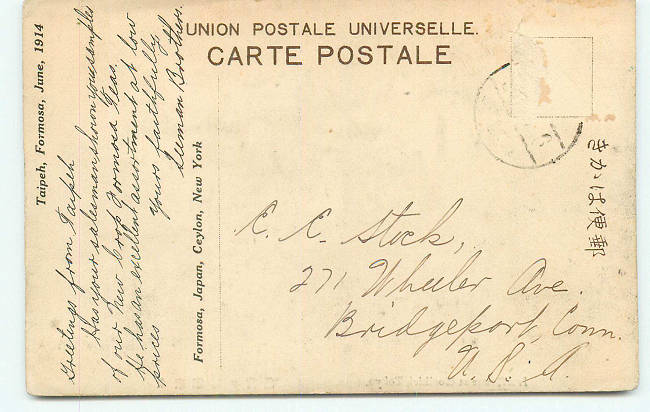 UNION POSTALE UNIVERSELLE.
CARTE POSTALE
Taipeh, Formosa, June, 1914
Greetings from Taipeh
Has your salesman shown you samples
of our New Crop Formosa Teas.
He has an excellent assortment at low
prices
Yours faithfully
Seeman Brothers.
Formosa, Japan, Ceylon, New York
E. E. Stock,
271 Wheeler Ave.
Bridgeport, Conn.
U. S. A.
きかは便郵